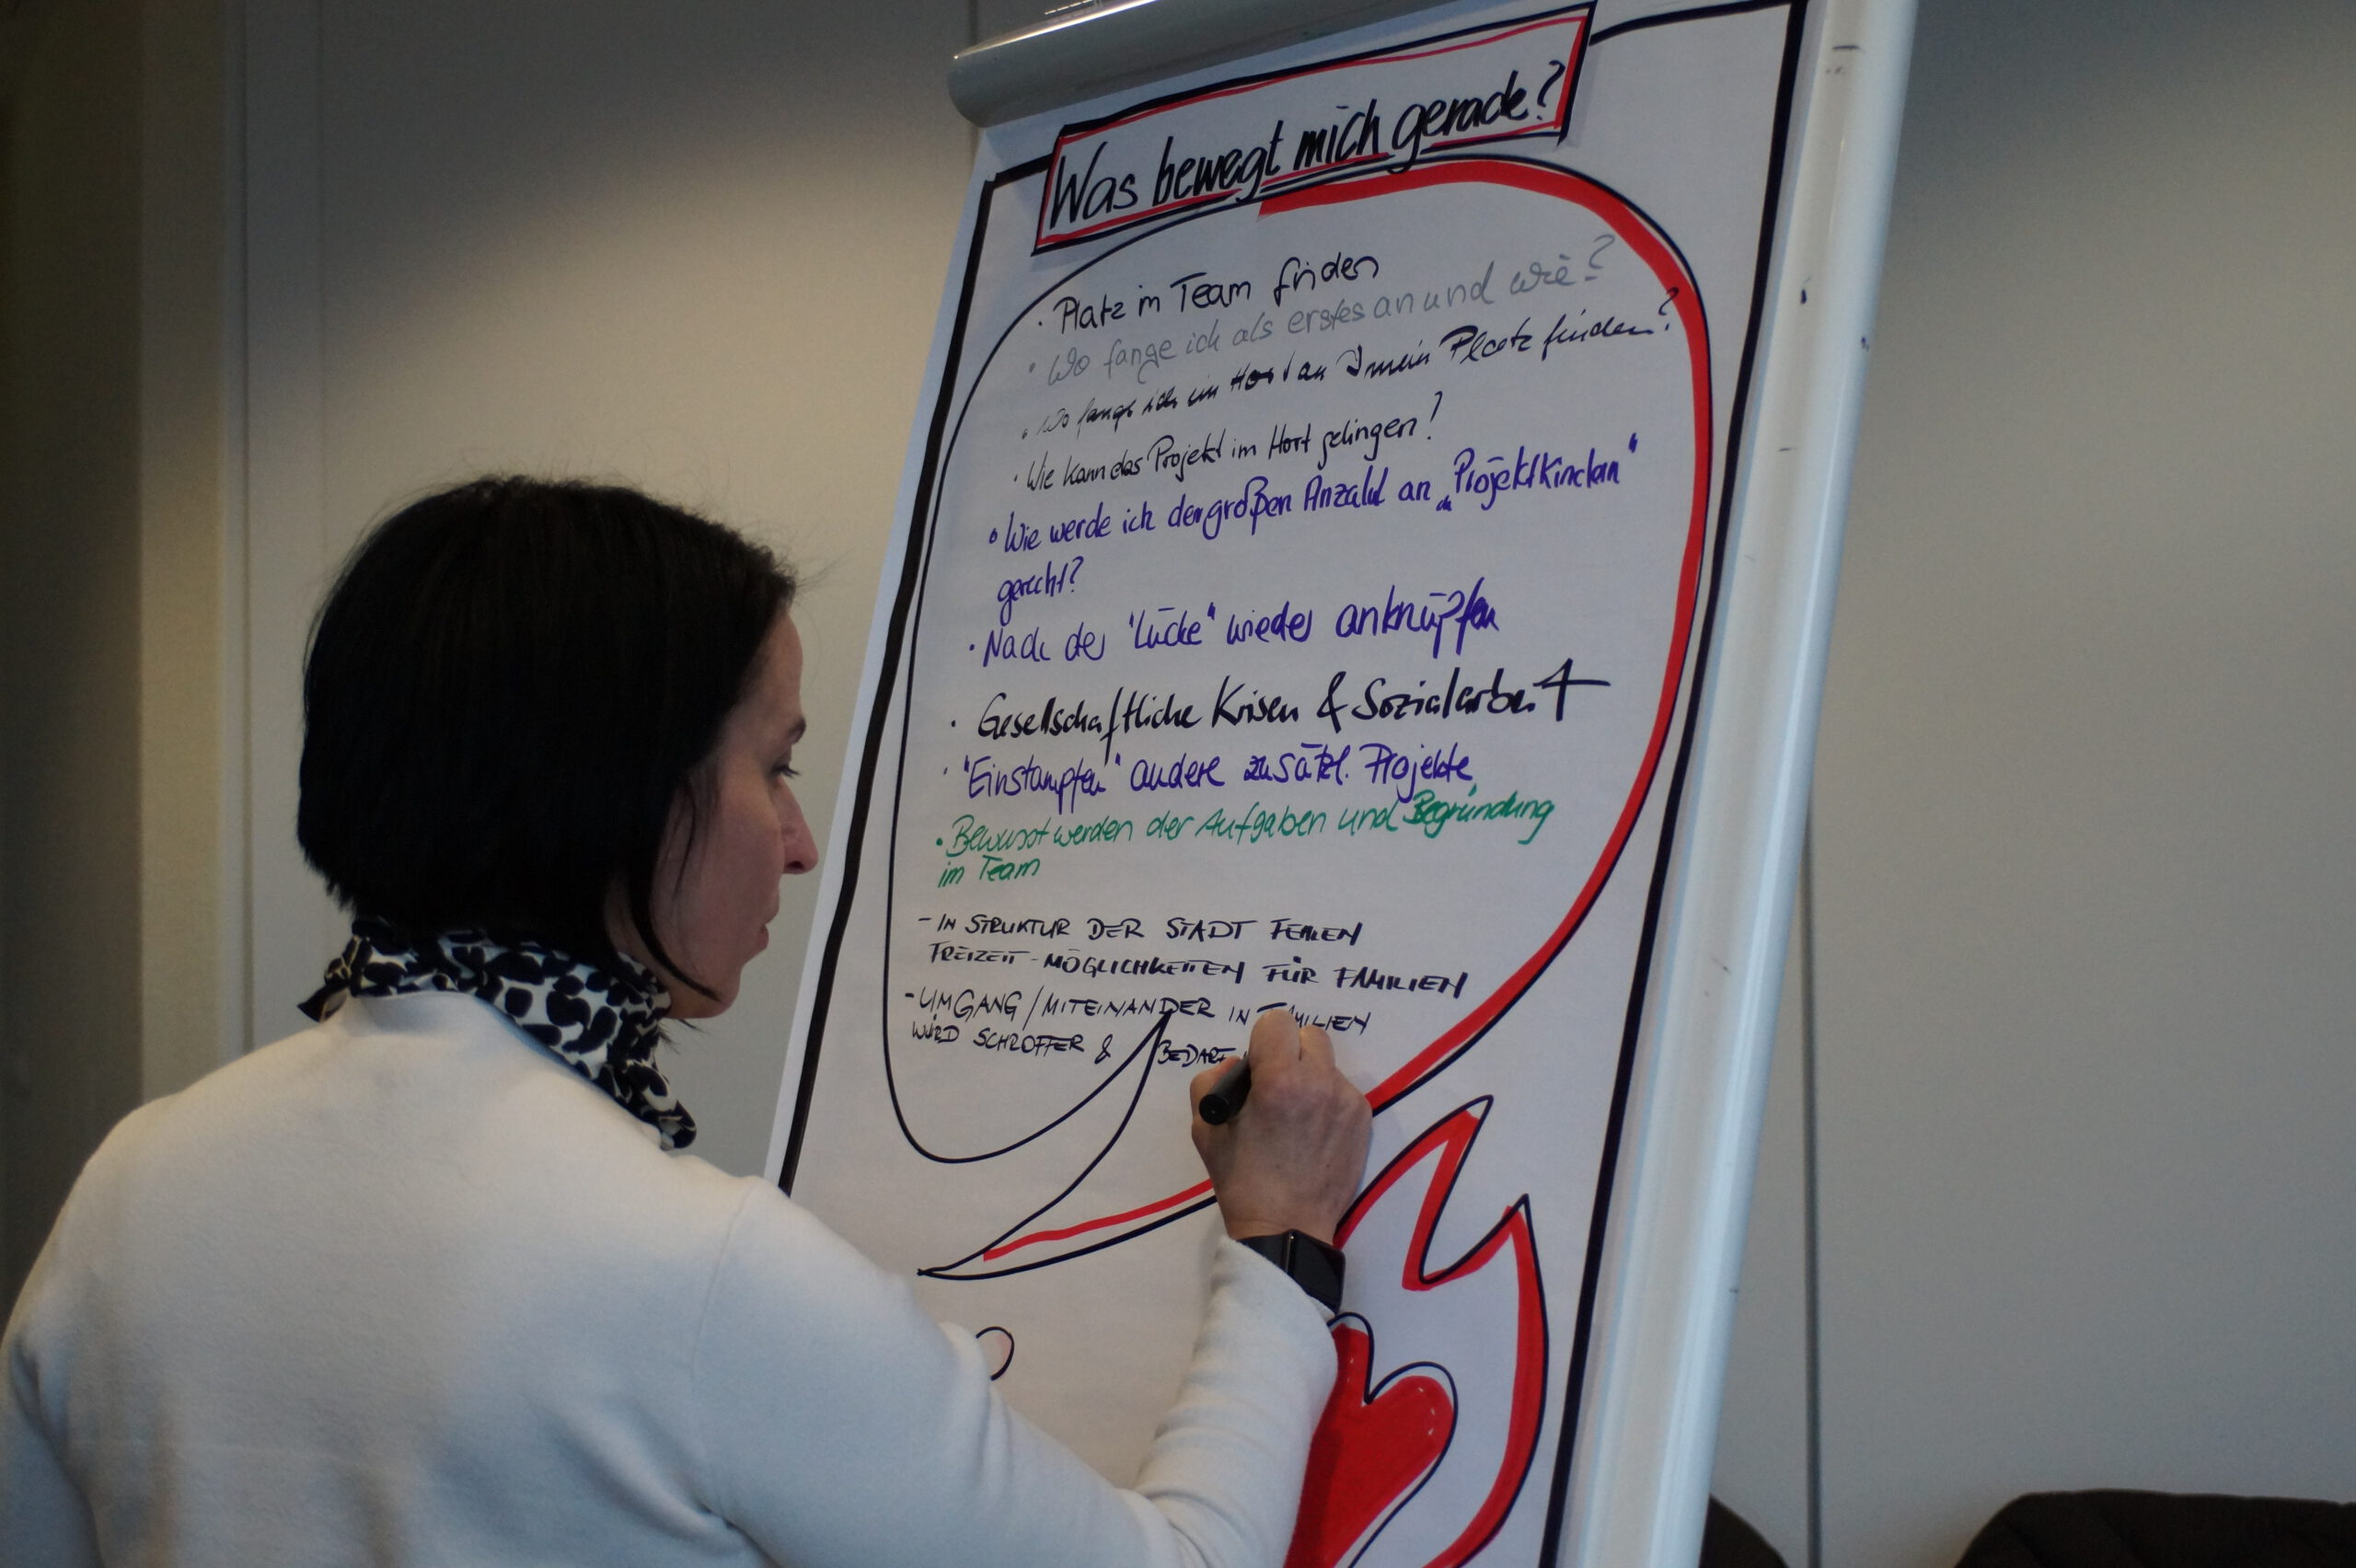 Was bewegt mich gerade?
· Platz im Team finden
· Wo fange ich als erstes an und wie?
· Wo fange ich im Hort an mein Platz finden?
· Wie kann das Projekt im Hort gelingen?
· Wie werde ich der großen Anzahl an „Projektkindern“
gerecht?
· Nach der "Lücke" wieder anknüpfen
· Gesellschaftliche Krisen & Sozialarbeit
· "Einstampfen" andere zusätzl. Projekte
· Bewusst werden der Aufgaben und Begründung
im Team
- IN STRUKTUR DER STADT FEHLEN
FREIZEIT-MÖGLICHKEITEN FÜR FAMILIEN
- UMGANG/MITEINANDER IN FAMILIEN
WIRD SCHROFFER & BEDARF